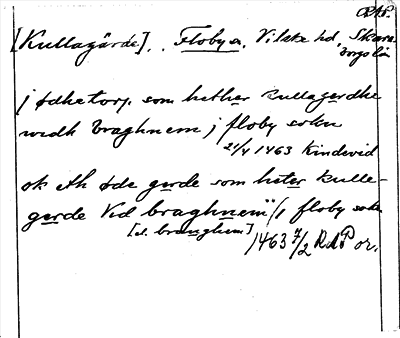 RAP.
[Kullagärde]. Floby sn, Vilske hd, Skara-
borgs län
j ödhetorp som hether kullagerdhe
widh braghnem j floby sokn
21/4 1463 Kindevid
ok eth öde gerde som heter kulle-
gerde vid braghnem" (i floby sokn
[el. branghem]
1463 7/2 RAP or.